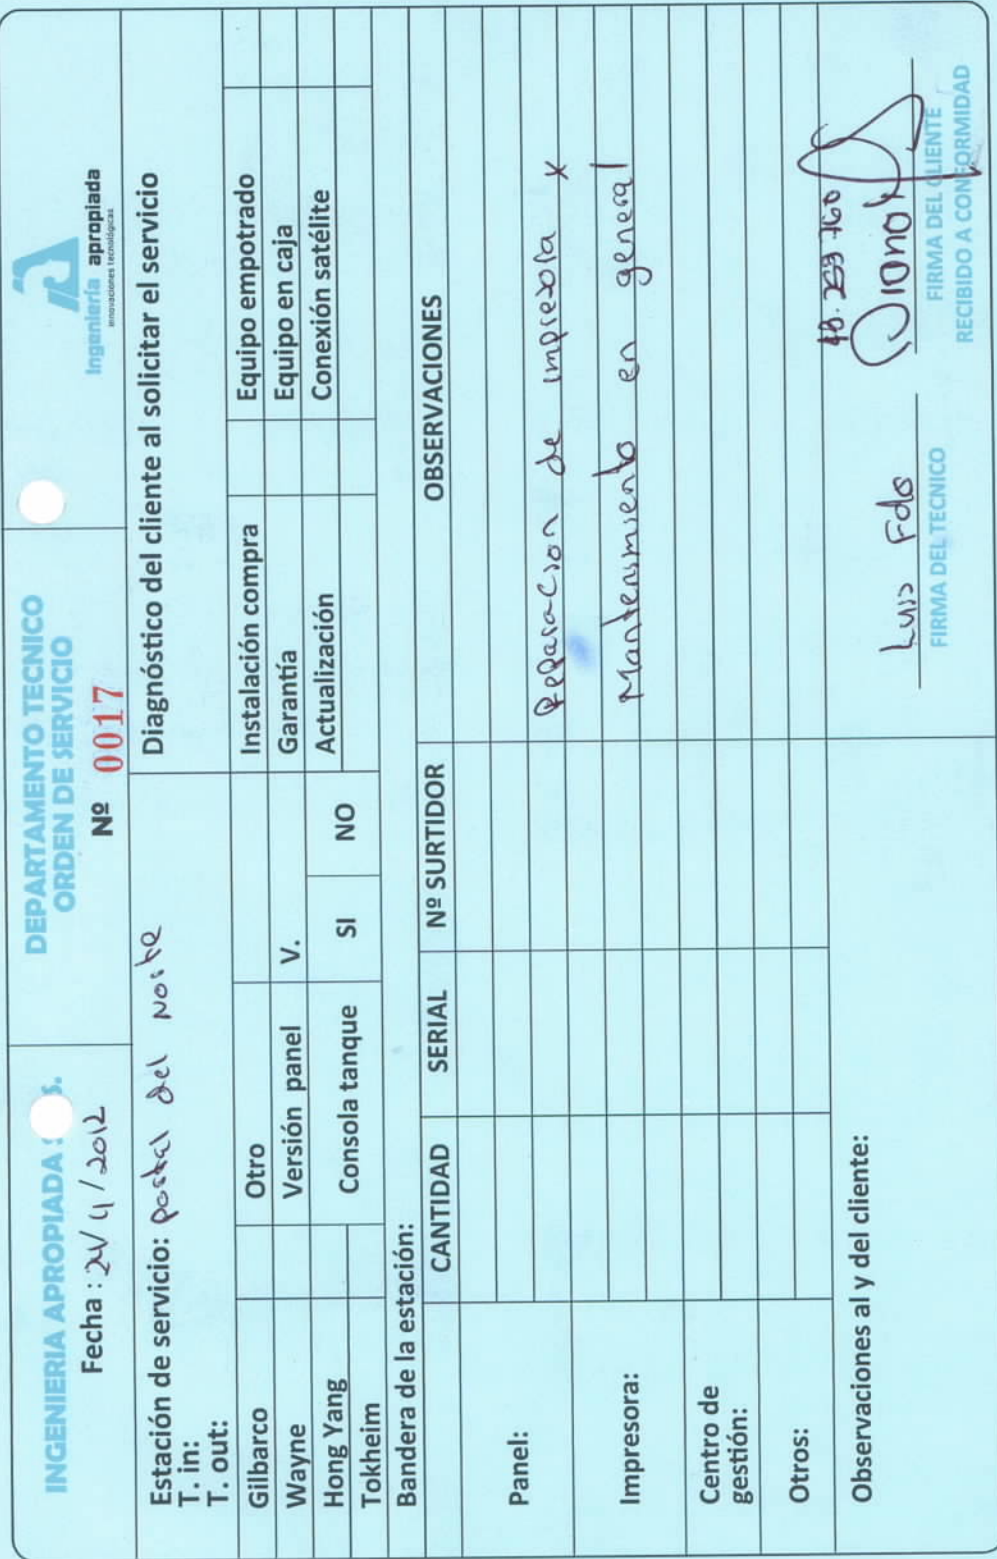 INGENIERIA APROPIADA S.
DEPARTAMENTO TECNICO
ORDEN DE SERVICIO
Nº 0017
Ingeniería apropiada
innovaciones tecnológicas
Fecha : 24/4/2012
Estación de servicio: postal del Norte
T. in:
T. out:
Diagnóstico del cliente al solicitar el servicio
Gilbarco Otro Instalación compra Equipo empotrado
Wayne Versión panel V. Garantía Equipo en caja
Hong Yang Consola tanque SI NO Actualización Conexión satélite
Tokheim
Bandera de la estación:
CANTIDAD SERIAL Nº SURTIDOR OBSERVACIONES
Panel:
Reparacion de impresora x
Impresora:
Mantenimiento en general
Centro de
gestión:
Otros:
Observaciones al y del cliente:
Luis Fdo
FIRMA DEL TECNICO
FIRMA DEL CLIENTE
RECIBIDO A CONFORMIDAD